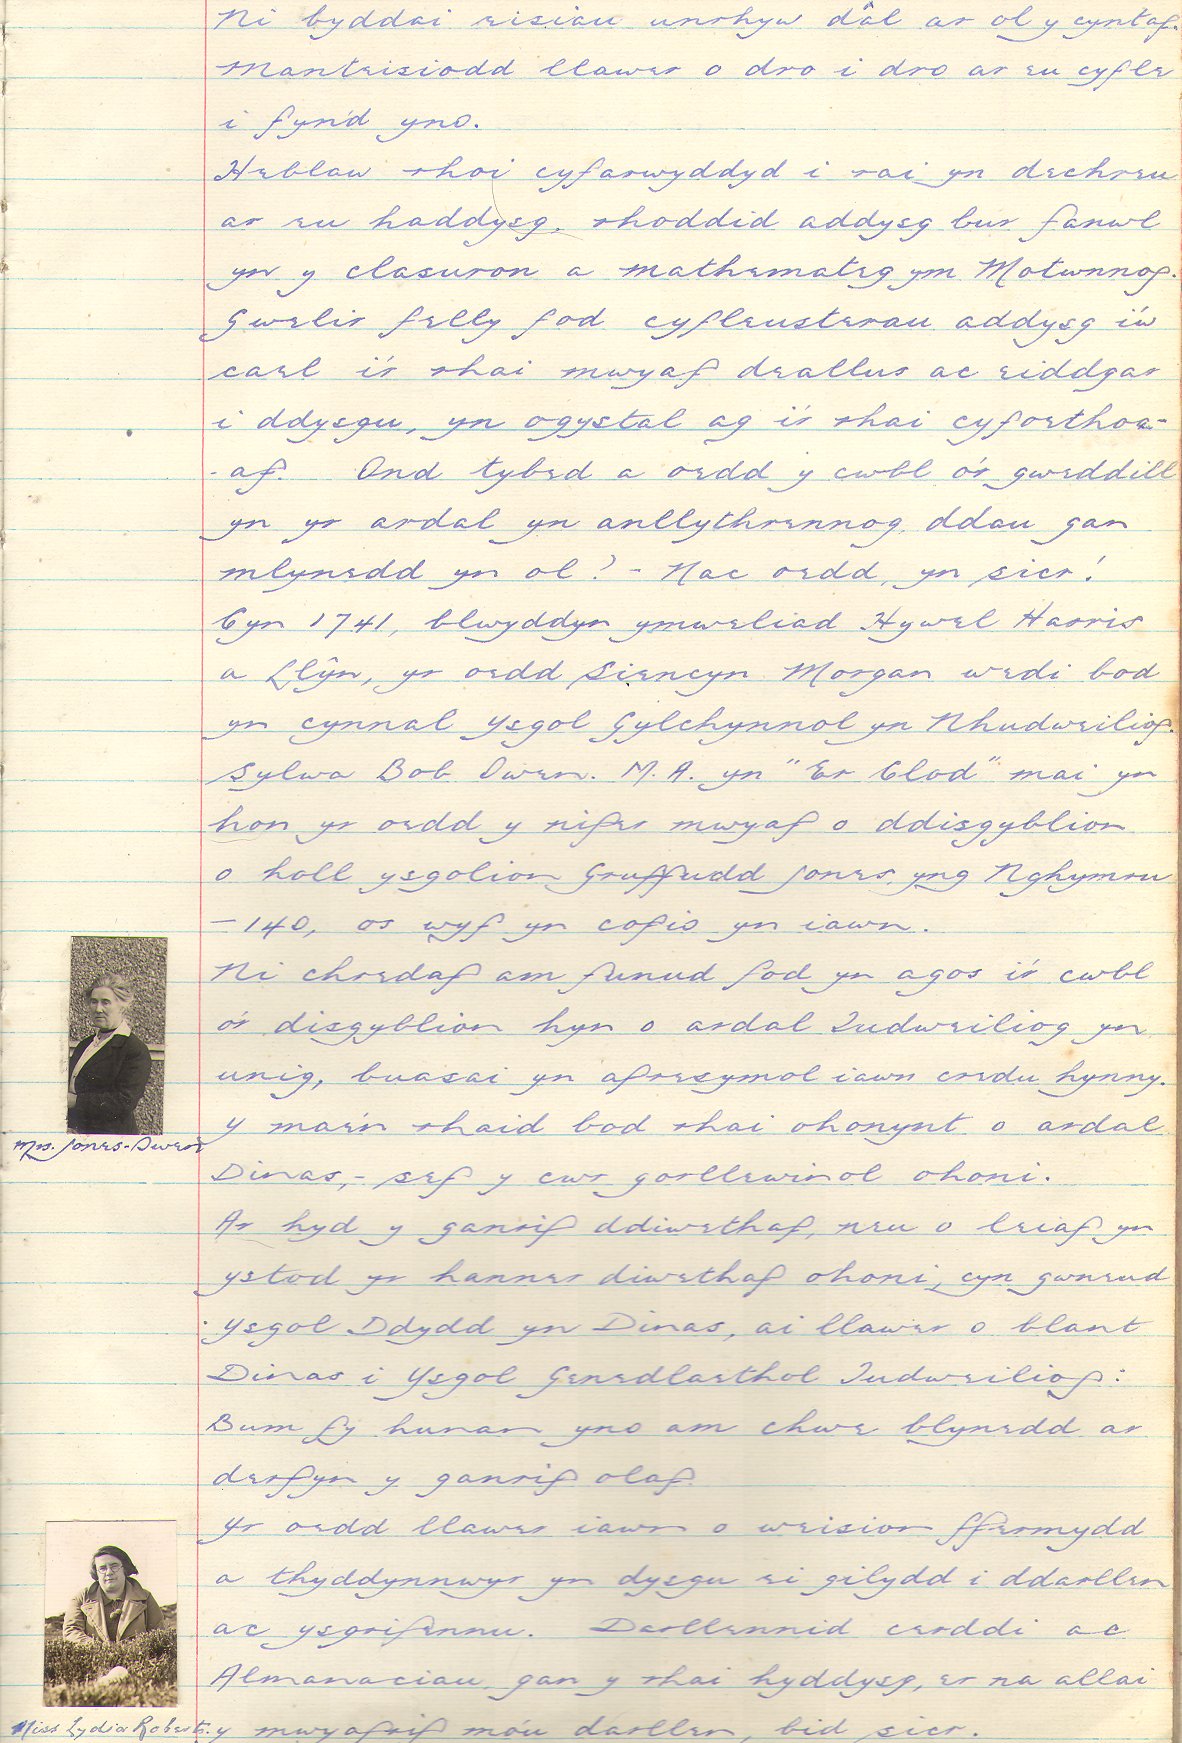 Ni byddai eisiau unrhyw dâl ar ol y cyntaf.
Manteisiodd llawer o dro i dro ar eu cyfle
i fyn'd yno.
Heblaw rhoi cyfarwyddyd i rai yn dechreu
ar eu haddysg, rhoddid addysg bur fanwl
yn y clasuron a mathemateg ym Motwnnog.
Gwelir felly fod cyfleusterau addysg i'w
cael i'r rhai mwyaf deallus ac eiddgar
i ddysgu, yn ogystal ag i'r rhai cyfoethoc-
-af. Ond tybed a oedd y cwbl o'r gweddill
yn yr ardal yn anllythrennog, ddau gan
mlynedd yn ol? - Nac oedd, yn sicr!
Cyn 1741, blwyddyn ymweliad Hywel Harris
a Llŷn, yr oedd Siencyn Morgan wedi bod
yn cynnal Ysgol Gylchynnol yn Nhudweiliog.
Sylwa Bob Owen. M.A. yn "Er Clod" mai yn
hon yr oedd y nifer mwyaf o ddisgyblion
o holl ysgolion Gruffudd Jones, yng Nghymru
- 140, os wyf yn cofio yn iawn.
Ni chredaf am funud fod yn agos i'r cwbl
o'r disgyblion hyn o ardal Tudweiliog yn
unig, buasai yn afresymol iawn credu hynny.
Y mae'n rhaid bod rhai ohonynt o ardal
Mrs. Jones-Owen
Dinas, - sef y cwr gorllewinol ohoni.
Ar hyd y ganrif ddiwethaf, neu o leiaf yn
ystod yr hanner diwethaf ohoni, cyn gwneud
Ysgol Ddydd yn Dinas, ai llawer o blant
Dinas i Ysgol Genedlaethol Tudweiliog:
Bum fy hunan yno am chwe blynedd ar
derfyn y ganrif olaf.
Yr oedd llawer iawn o weision ffermydd
a thyddynnwyr yn dysgu ei gilydd i ddarllen
ac ysgrifennu. Darllennid cerddi ac
Almanaciau gan y rhai hyddysg, er na allai
Miss Lydia Roberts.
y mwyafrif mo'u darllen, bid sicr.